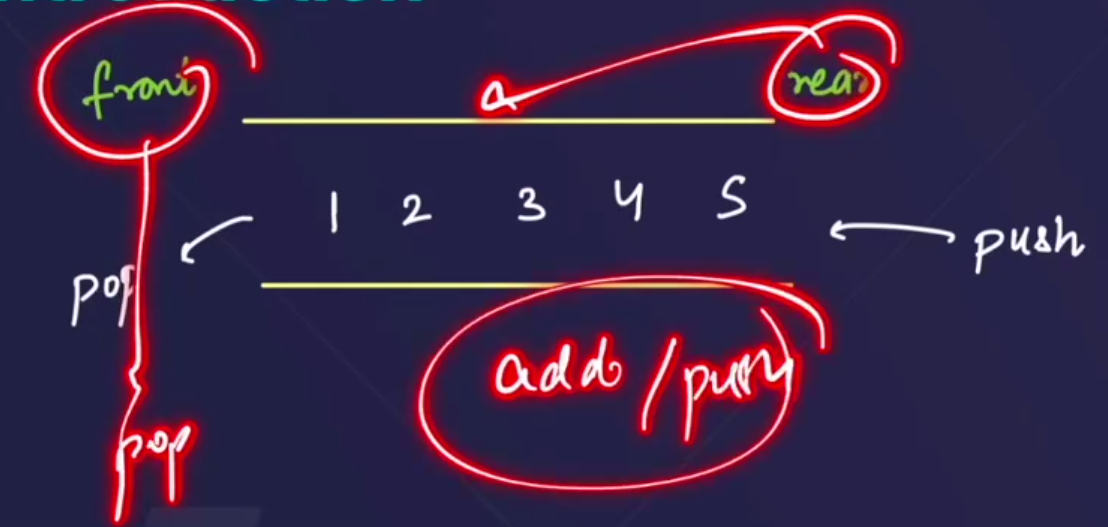 front rear
1 2 3 4 5
push
pop
add/push
pop